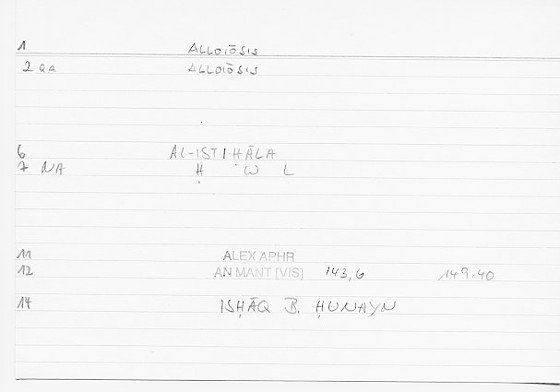 1 ALLOIŌSIS
2 QA ALLOIŌSIS
6 AL-ISTIḤĀLA
7 NA Ḥ W L
11 ALEX APHR
12 AN MANT [VIS] 143,6 149.40
14 ISḤĀQ B. ḤUNAYN